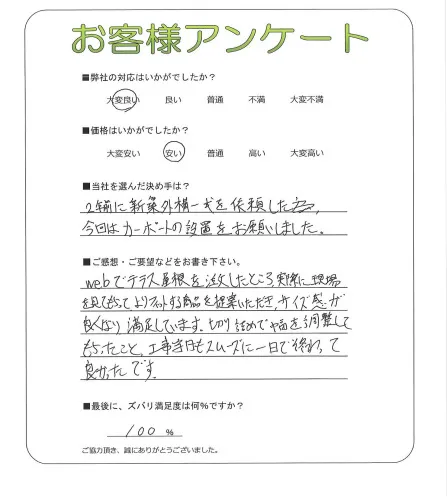 お客様アンケート
■弊社の対応はいかがでしたか？
大変良い 良い 普通 不満 大変不満
■価格はいかがでしたか？
大変安い 安い 普通 高い 大変高い
■当社を選んだ決め手は？
2年前に新築外構一式を依頼した
今回はカーポートの設置をお願いしました。
■ご感想・ご要望などをお書き下さい。
webでテラス屋根を注文したところ実際に現場
を見てもらってよりフィットする商品を提案いただき、サイズ感が
良くなり満足しています。切り詰めで巾を調整して
もらったこと、工事当日もスムーズに一日で終わって
良かったです。
■最後に、ズバリ満足度は何％ですか？
100 %
ご協力頂き、誠にありがとうございました。